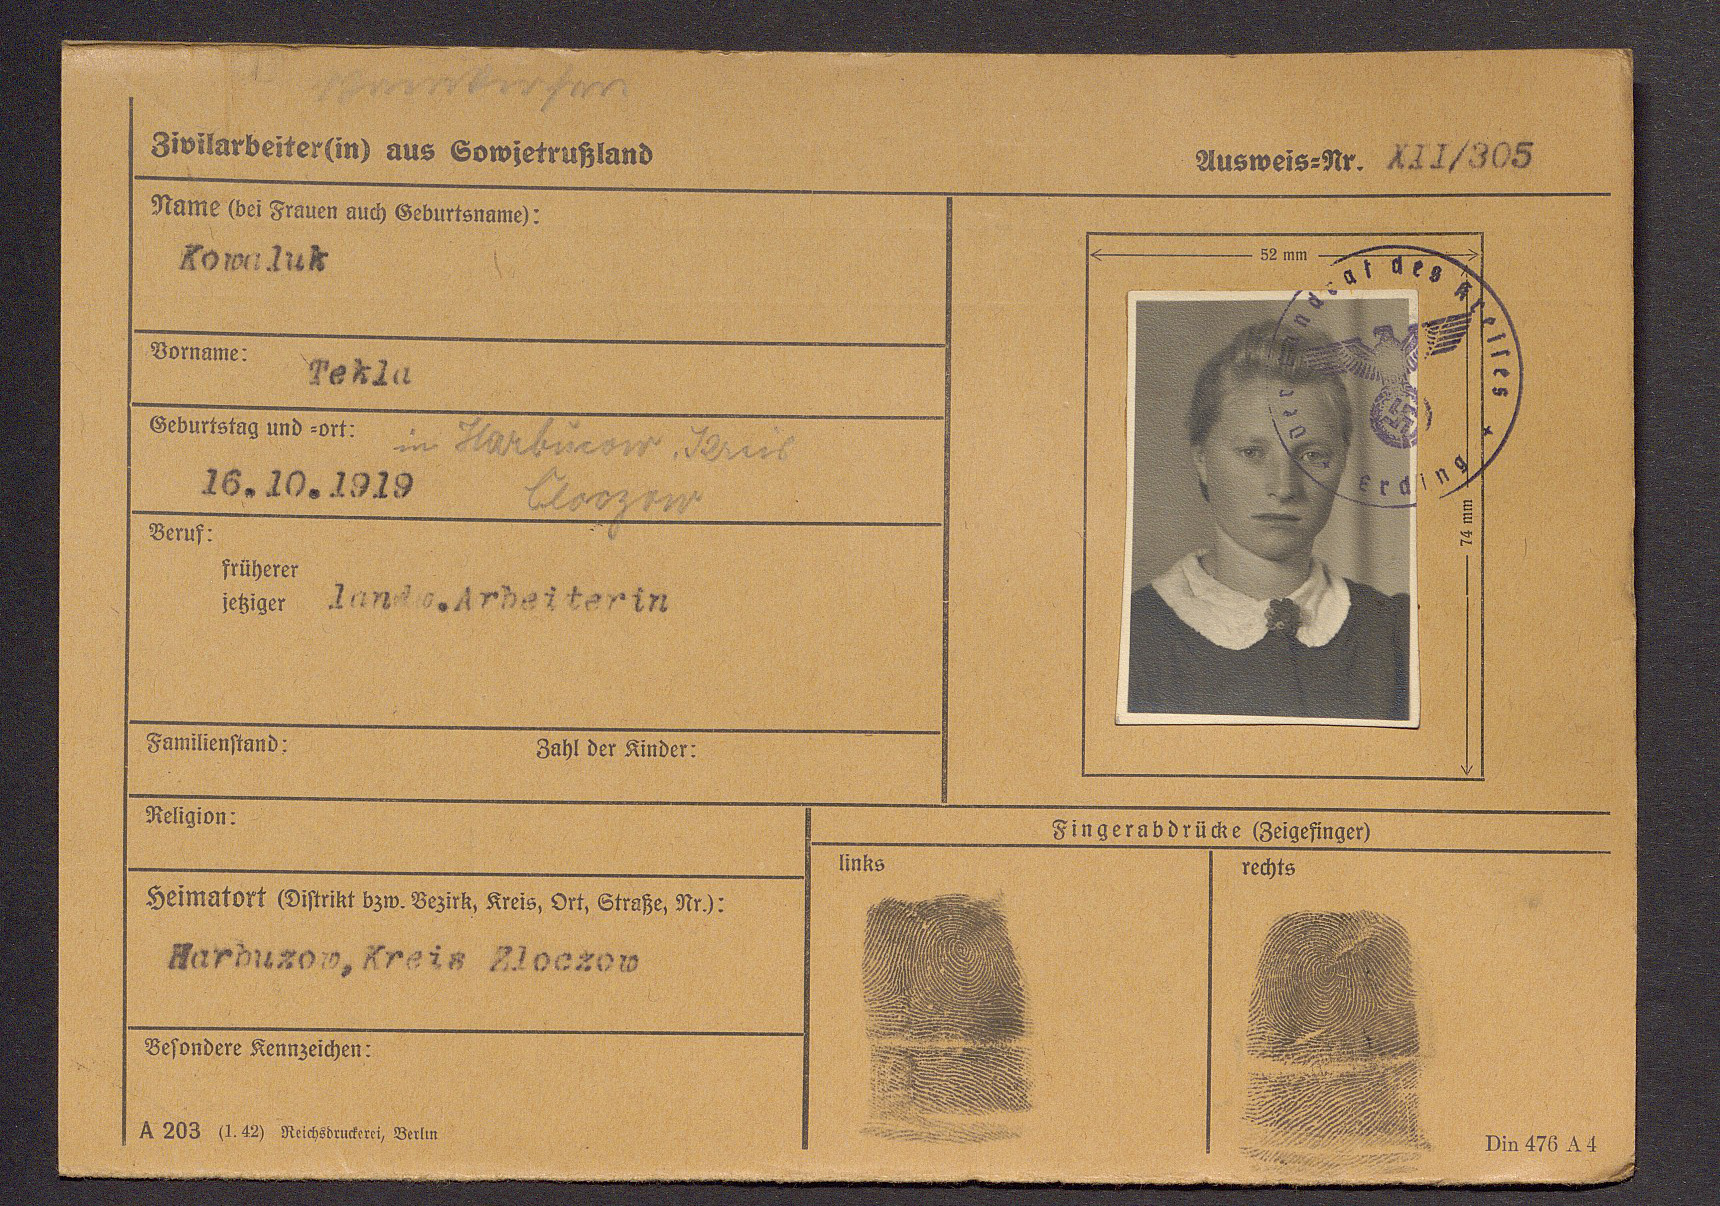 Zivilarbeiter(in) aus Sowjetrußland
Ausweis=Nr. XII/305
Name (bei Frauen auch Geburtsname):
Kowaluk
Vorname:
Tekla
Geburtstag und =ort:
in Harbucow, Kreis
16.10.1919
Cloczow
Beruf:
früherer
jetziger landw.Arbeiterin
Familienstand:
Zahl der Kinder:
Religion:
Heimatort (Distrikt bzw. Bezirk, Kreis, Ort, Straße, Nr.):
Harbuzow, Kreis Zloczow
Besondere Kennzeichen:
A 203 (1. 42) Reichsdruckerei, Berlin
52 mm
74 mm
Der Landrat des Kreises
Erding
Fingerabdrücke (Zeigefinger)
links
rechts
Din 476 A 4